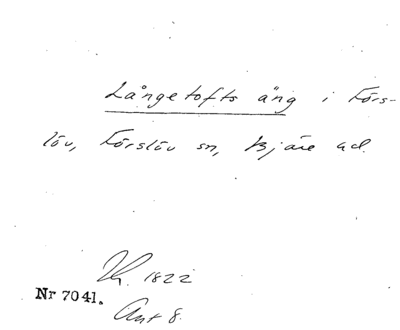 Långetofts äng i Förs-
löv, Förslöv sn, Bjäre hd.
1822
Nr 7041.
Akt 8.